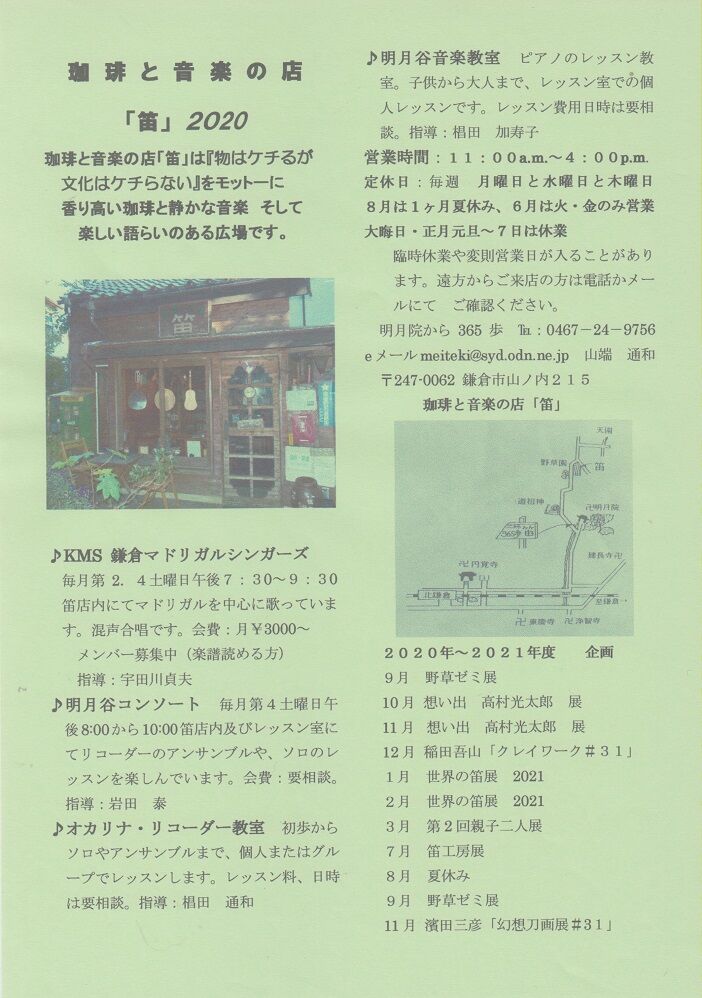 珈琲と音楽の店
「笛」2020
珈琲と音楽の店「笛」は『物はケチるが
文化はケチらない』をモットーに
香り高い珈琲と静かな音楽 そして
楽しい語らいのある広場です。
笛
♪KMS 鎌倉マドリガルシンガーズ
毎月第 2. 4土曜日午後7：30～9：30
笛店内にてマドリガルを中心に歌っていま
す。混声合唱です。会費：月￥3000～
メンバー募集中（楽譜読める方）
指導：宇田川貞夫
♪明月谷コンソート 毎月第4土曜日午
後8:00から10:00笛店内及びレッスン室に
てリコーダーのアンサンブルや、ソロのレ
ッスンを楽しんでいます。会費：要相談。
指導：岩田 泰
♪オカリナ・リコーダー教室 初歩から
ソロやアンサンブルまで、個人またはグル
ープでレッスンします。レッスン料、日時
は要相談。指導：椙田 通和
♪明月谷音楽教室 ピアノのレッスン教
室。子供から大人まで、レッスン室での個
人レッスンです。レッスン費用日時は要相
談。指導：椙田 加寿子
営業時間：１１：００a.m.～４：００p.m.
定休日：毎週 月曜日と水曜日と木曜日
８月は１ヶ月夏休み、６月は火・金のみ営業
大晦日・正月元旦～７日は休業
臨時休業や変則営業日が入ることがあり
ます。遠方からご来店の方は電話かメー
ルにて ご確認ください。
明月院から 365 歩 ℡：0467－24－9756
eメール meiteki@syd.odn.ne.jp 山端 通和
〒247-0062 鎌倉市山ノ内２１５
珈琲と音楽の店「笛」
天園
野草園
笛
道祖神
卍明月院
365歩 笛
建長寺卍
卍円覚寺
北鎌倉
至鎌倉
卍東慶寺
卍浄智寺
２０２０年～２０２１年度 企画
9月 野草ゼミ展
10月 想い出 高村光太郎 展
11月 想い出 高村光太郎 展
12月 稲田吾山「クレイワーク＃３１」
１月 世界の笛展 2021
２月 世界の笛展 2021
３月 第２回親子二人展
７月 笛工房展
８月 夏休み
９月 野草ゼミ展
11月 濱田三彦「幻想刀画展＃３１」